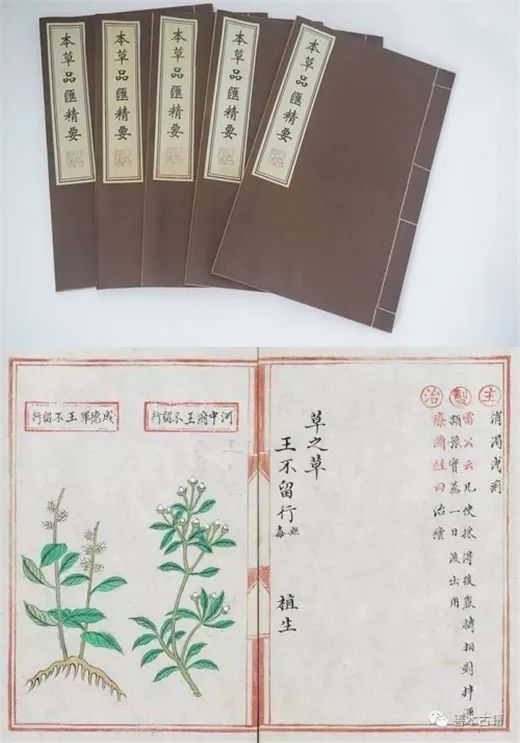 本草品匯精要
本草品匯精要
本草品匯精要
本草品匯精要
本草品匯精要
主
消渴洩痢
製
雷公云凡使採得後
一日
出用
治
療圖經曰治
草之草
王不留行 無毒 植生
河中府王不留行
成德軍王不留行
善本古籍